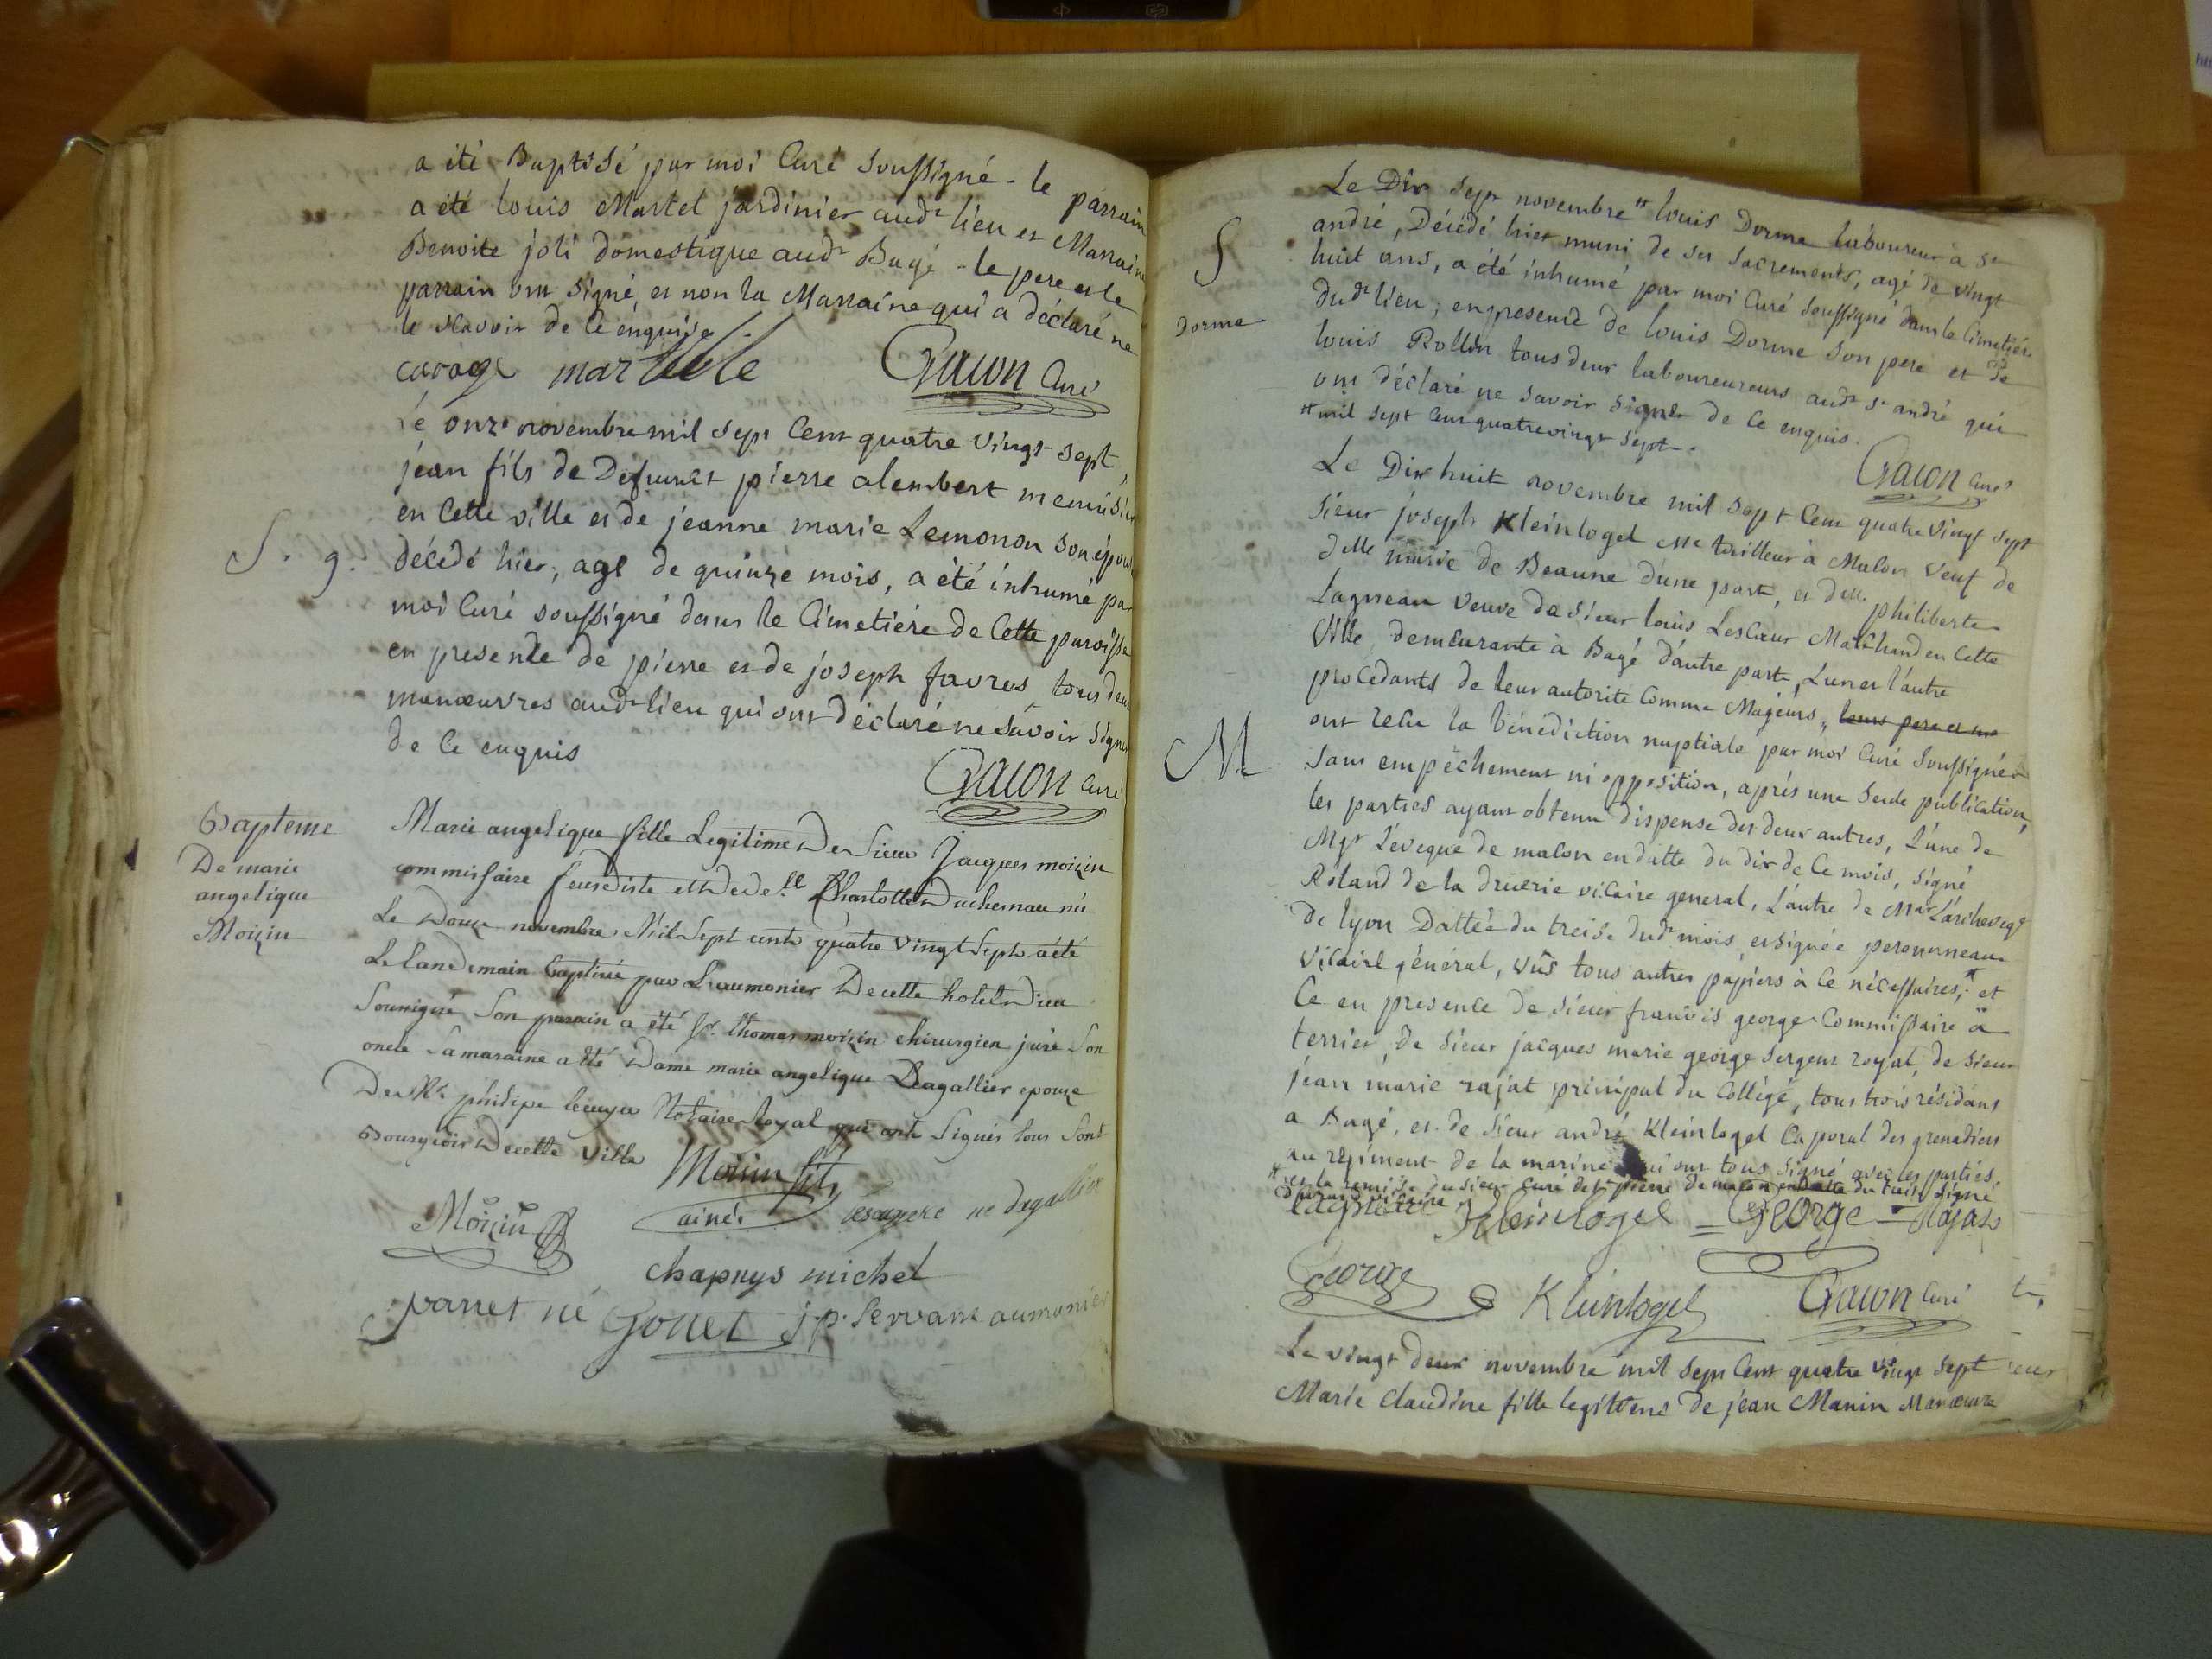 a été Baptisé par moi Curé soussigné - le parrain
a été louis Martel jardinier audt lieu et Marraine
Benoite joli domestique audt Bagé - le pere et le
parrain ont signé, et non la Marraine qui a déclaré ne
le scavoir de ce enquise
carage martele Gacon Curé
Le onze novembre mil sept Cent quatre vingt sept,
jean fils de Defunct pierre alembert menuisier
en Cette ville et de jeanne marie Lemonon son épouse
S. g. décédé hier, agé de quinze mois, a été inhumé par
moi Curé soussigné dans le Cimetiére de Cette paroisse
en presence de pierre et de joseph favres tous deux
manœuvres audt lieu qui ont déclaré ne savoir signer
de ce enquis
Gacon Curé
Bapteme
De marie
angelique
Moizin
Marie angelique fille Legitime De Sieur Jacques moizin
commissaire feudiste et De delle Charlotte Duchenau née
Le Douze novembre Mil Sept cents quatre vingt Sept a été
Le landemain Baptisée par L'aumonier De cette hotel Dieu
Sousigné Son parain a été Sr thomas moizin chirurgien juré Son
oncle Sa maraine a été Dame marie angelique Dagallier epouze
De Me philipe lecuyer Notaire Royal qui ont Signés tous Sont
Bourgeois De cette ville
Moizin fils
ainé. lescuyere né dagallier
Moizin
chapuys michel
parret né Gouet j p. Servant aumonier
Le Dix sept novembre # louis Dorme laboureur à st
S andré, Décédé hier muni de ses sacrements, agé de vingt
huit ans, a été inhumé par moi Curé soussigné dans le Cimetiére
Dorme dudt lieu, en presence de louis Dorme son pere et de
louis Rollin tous deux laboureureurs audt st andré qui
ont déclaré ne savoir signer de ce enquis.
# mil sept Cent quatrevingt sept.
Gacon Curé
Le Dix huit novembre mil sept Cent quatre vingt sept
sieur joseph Kleinlogel Me tailleur à Macon veuf de
delle marie de Beaune d'une part, et delle philiberte
Lagneau veuve de sieur louis Lescœur Marchand en Cette
Ville, demeurante à Bagé d'autre part, L'un et l'autre
procedants de leur autorite Comme Majeurs, leurs pere et me
M. ont recu la bénédiction nuptiale par moi Curé soussigné
sans empêchement ni opposition, aprés une seule publication,
les parties ayant obtenu dispense des deux autres, L'une de
Mgr L'éveque de macon en datte du dix de ce mois, signé
Roland de la druerie vicaire general, L'autre de Mgr L'archeveqe
de lyon Dattée du treise dudt mois et signée peronneau
Vicaire général, vûs tous autres papiers à ce nécessaires, # et
Ce en presence de sieur francois george Commissaire à
terrier, de sieur jacques marie george sergent royal, de sieur
jean marie rajat principal du Collége, tous trois résidans
a Bagé, et de sieur andré Kleinlogel Caporal des grenadiers
au régiment de la marine qui ont tous signé avec les parties.
# et la remise du sieur curé de st pierre de macon en datte du signé
vicaire
Lagneau Kleinlogel = George = Rajat
George Kleinlogel Gacon Curé
Le vingt deux novembre mil sept Cent quatre vingt sept
Marie Claudine fille legitime de jean Manin Manœuvre